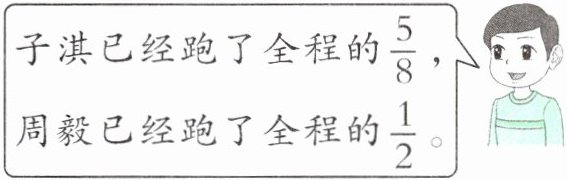 子淇已经跑了全程的5/8，
周毅已经跑了全程的1/2。